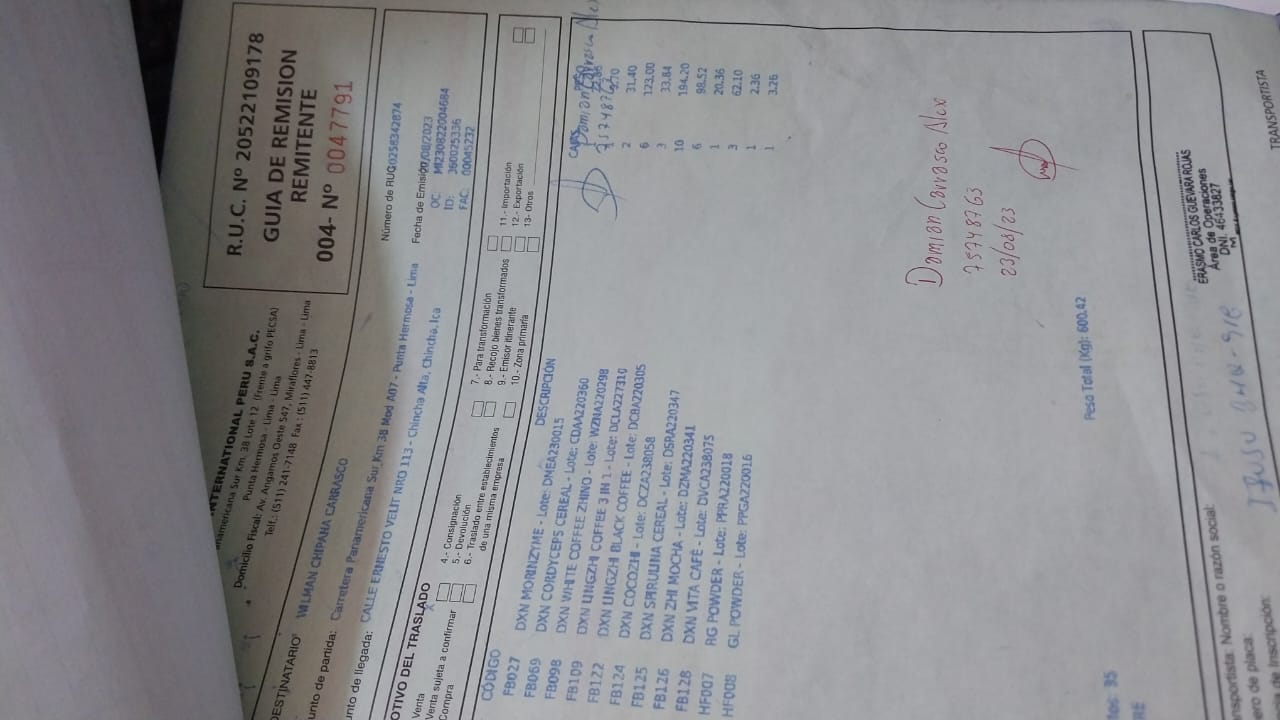 R.U.C. Nº 20522109178
GUIA DE REMISION
REMITENTE
004- Nº 0047791
INTERNATIONAL PERU S.A.C.
Panamericana Sur Km. 38 Lote 12 (Frente a grifo PECSA)
Punta Hermosa - Lima - Lima
Domicilio Fiscal: Av. Angamos Oeste 547, Miraflores - Lima - Lima
Telf.: (511) 241-7148 Fax : (511) 447-8813
DESTINATARIO WILMAN CHIPANA CARRASCO
Número de RUC: 0258342874
unto de partida: Carretera Panamericana Sur Km 38 Mod A07 - Punta Hermosa - Lima
Fecha de Emisión /08/2023
unto de llegada: CALLE ERNESTO VELIT NRO 113 - Chincha Alta, Chincha, Ica
OC: MI230822004684
ID: 360025336
FAC: 00045232
OTIVO DEL TRASLADO
Venta
Venta sujeta a confirmar
Compra
4.- Consignación
5.- Devolución
6.- Traslado entre establecimientos
de una misma empresa
7.- Para transformación
8.- Recojo bienes transformados
9.- Emisor itinerante
10.- Zona primaria
11.- Importación
12.- Exportación
13- Otros
CÓDIGO DESCRIPCIÓN CAJAS PESO
FB027 DXN MORINZYME - Lote: DMEA230015
FB069 DXN CORDYCEPS CEREAL - Lote: CDAA220360
FB098 DXN WHITE COFFEE ZHINO - Lote: WZNA220298 2 31.40
FB109 DXN LINGZHI COFFEE 3 IN 1 - Lote: DCLA227310 6 123.00
FB122 DXN LINGZHI BLACK COFFEE - Lote: DCBA220305 3 33.84
FB124 DXN COCOZHI - Lote: DCZA238058 10 194.20
FB125 DXN SPIRULINA CEREAL - Lote: DSRA220347 6 98.52
FB126 DXN ZHI MOCHA - Lote: DZMA220341 1 20.36
FB128 DXN VITA CAFÉ - Lote: DVCA238075 3 62.10
HF007 RG POWDER - Lote: PPRA220018 1 2.36
HF008 GL POWDER - Lote: PPGA220016 1 3.26
Damian Carrasco Alex
75748763
Damian Carrasco Alex
75748763
23/08/23
Peso Total (Kg): 600.42
tos: 35
RE
ERASMO CARLOS GUEVARA ROJAS
Área de Operaciones
DNI. 46433827
nsportista: Nombre o razón social:
ero de placa:
de inscripción:
TRANSPORTISTA